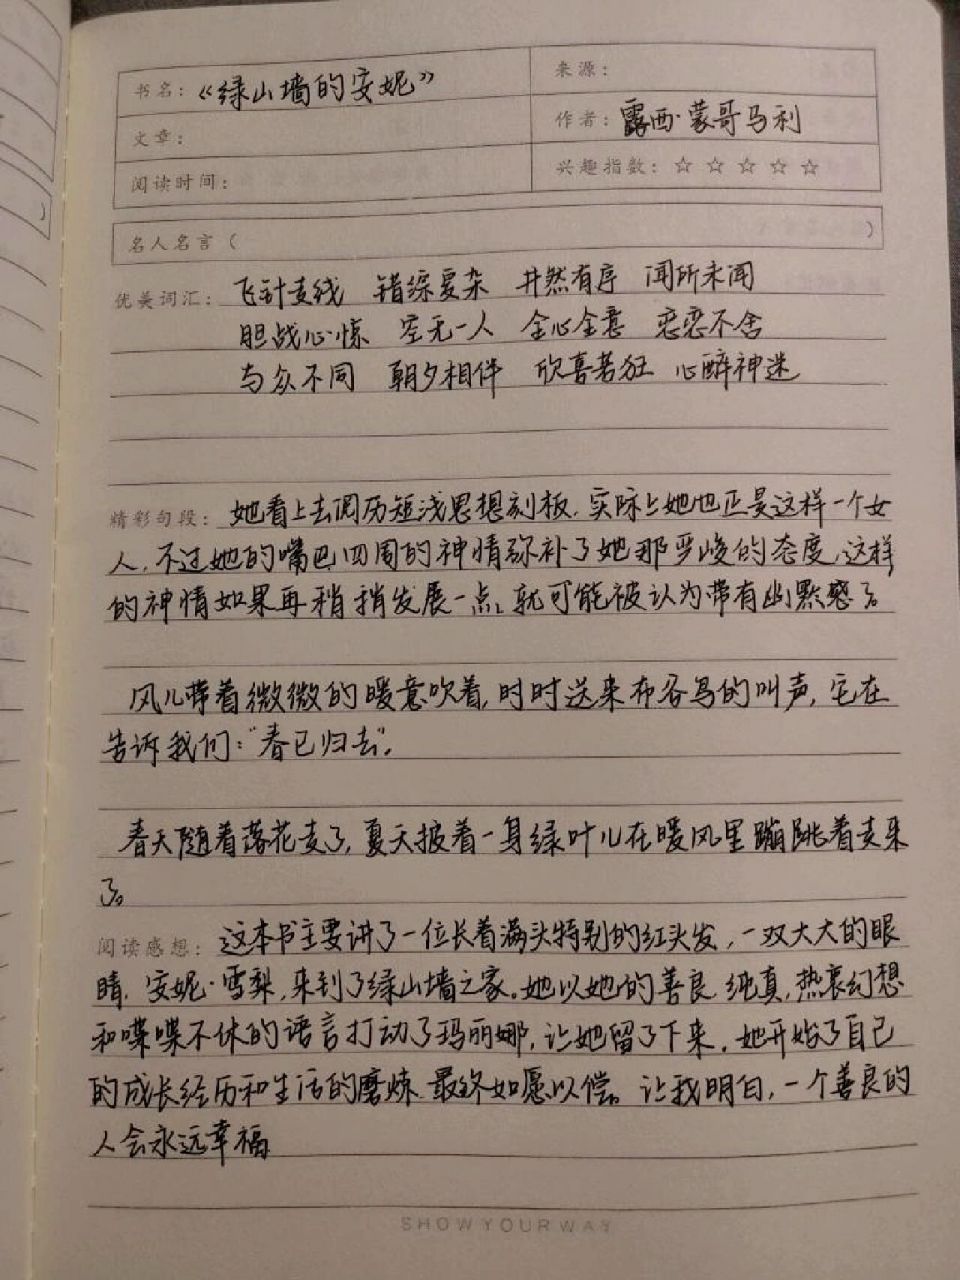 书名：《绿山墙的安妮》
来源：
文章：
作者：露西·蒙哥马利
阅读时间：
兴趣指数：☆ ☆ ☆ ☆ ☆
名人名言（ ）
优美词汇：飞针走线 错综复杂 井然有序 闻所未闻
胆战心惊 空无一人 全心全意 恋恋不舍
与众不同 朝夕相伴 欣喜若狂 心醉神迷
精彩句段：她看上去阅历短浅思想刻板，实际上她也正是这样一个女
人，不过她的嘴巴四周的神情弥补了她那严峻的态度，这样
的神情如果再稍稍发展一点，就可能被认为带有幽默感了。
风儿带着微微的暖意吹着，时时送来布谷鸟的叫声，它在
告诉我们：“春已归去”。
春天随着落花走了，夏天披着一身绿叶儿在暖风里蹦跳着走来
了。
阅读感想：这本书主要讲了一位长着满头特别的红头发，一双大大的眼
睛，安妮·雪梨，来到了绿山墙之家。她以她的善良，纯真，热衷幻想
和喋喋不休的语言打动了玛丽娜，让她留了下来，她开始了自己
的成长经历和生活的磨炼，最终如愿以偿。让我明白，一个善良的
人会永远幸福
SHOW YOUR WAY